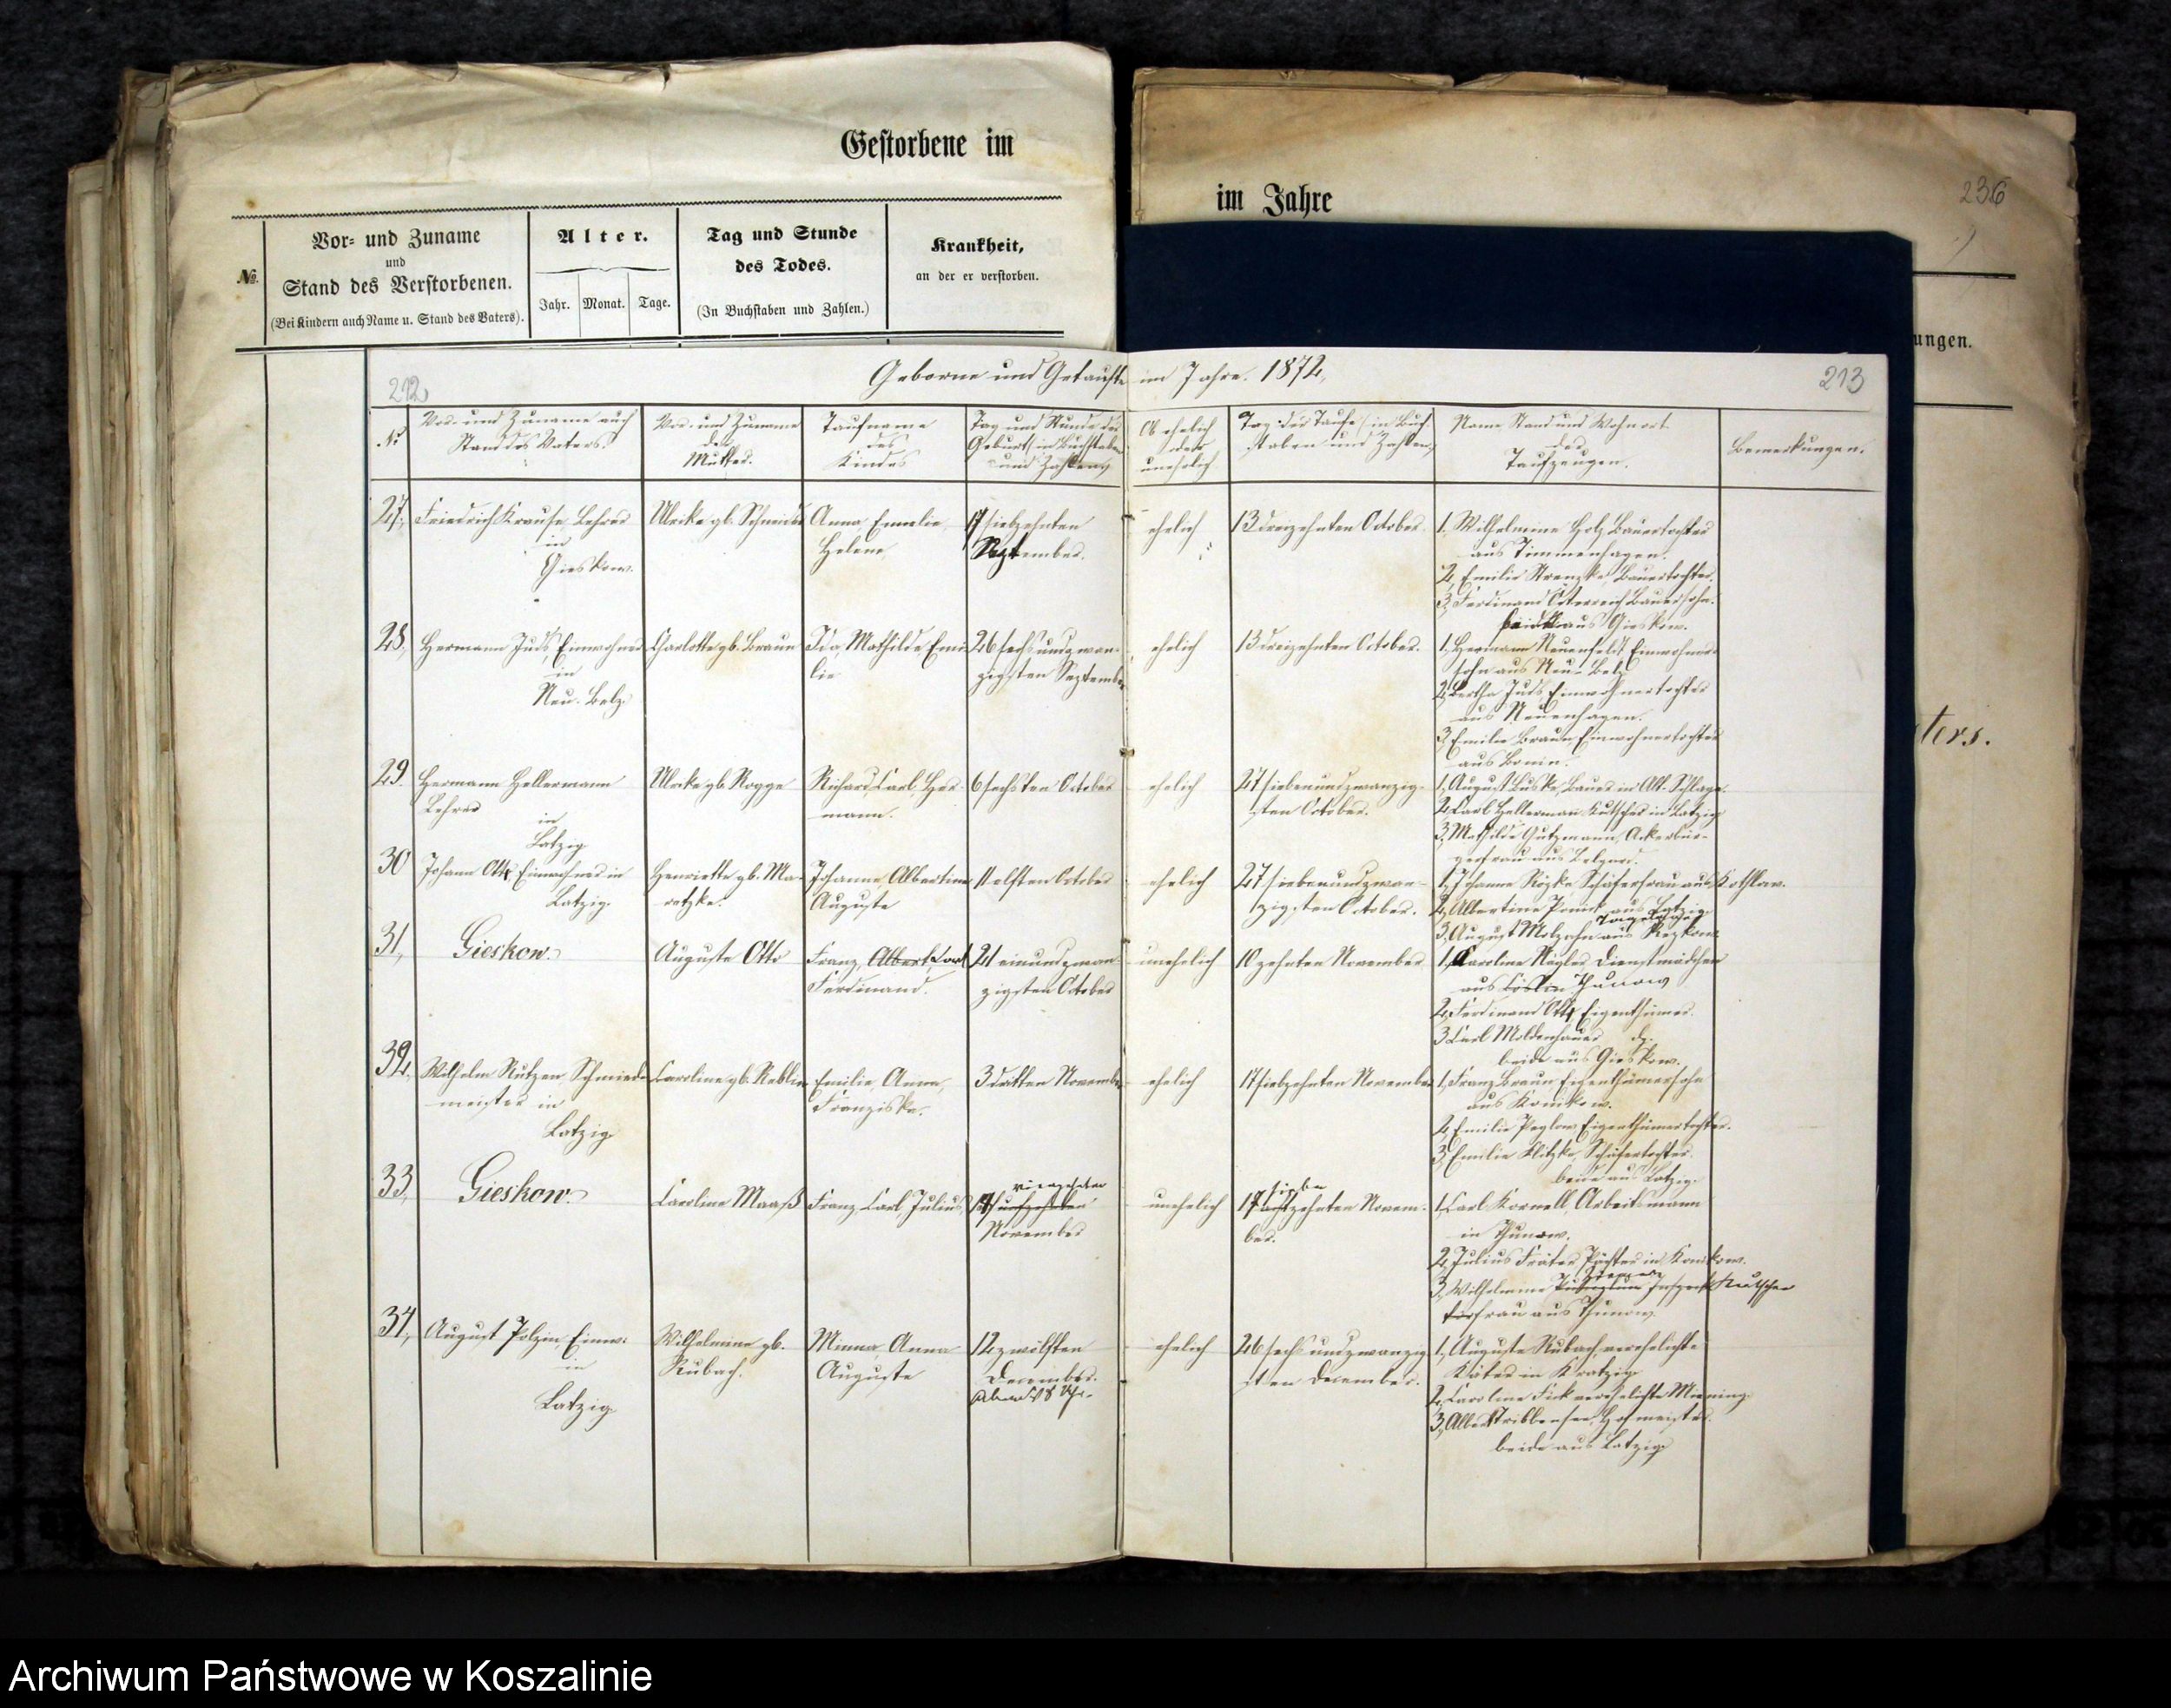 Gestorbene im
im Jahre
236
№.
Vor= und Zuname
und
Stand des Verstorbenen.
(Bei Kindern auch Name u. Stand des Vaters).
Alter.
Jahr. Monat. Tage.
Tag und Stunde
des Todes.
(In Buchstaben und Zahlen.)
Krankheit,
an der er verstorben.
ungen.
ters.
212
Geborne und Getaufte im Jahre. 1872,
213
№
Vor- und Zuname auch
Stand des Vaters.
Vor- und Zuname
der
Mutter.
Taufname
des
Kindes
Tag und Stunde der
Geburt (in Buchstaben
und Zahlen)
Ob ehelich
oder
unehelich
Tag der Taufe (in Buch-
staben und Zahlen)
Name Stand und Wohnort
der
Taufzeugen.
Bemerkungen.
27,
Friedrich Krause, Lehrer
in
Gieskow.
Ulrike gb. Schneider
Anna, Emilie,
Helene
17 siebzehnten
September.
ehelich
13 dreizehnten October
1, Wilhelmine Holz Bauertochter
aus Timmenhagen.
2, Emilie Strenzke Bauertochter.
3, Ferdinand Osterreich Bauersohn.
beide aus Gieskow.
28,
Hermann Juds, Einwohner
in
Neu-Belz.
Charlotte gb. Braun
Ida, Mathilde, Emi-
lie
26 sechsundzwan-
zigsten September
ehelich
13 dreizehnten October.
1, Hermann Neuenfeldt Einwohner-
sohn aus Neu-Belz
2, Bertha Juds Einwohnertochter
aus Neuenhagen.
3, Emilie Braun Einwohnertochter
aus Bonin.
29.
Hermann Hellermann
Lehrer
in
Latzig
Ulrike gb. Rogge
Richard, Carl, Her-
mann.
6 sechsten October
ehelich
27 siebenundzwanzig-
sten October.
1, August Buske, Bauer in Alt-Schlage.
2, Carl Hellermann Kutscher in Latzig
3, Mathilde Gutzmann, Ackerbür-
gerfrau aus Belgard.
30
Johann Otto, Einwohner in
Latzig.
Henriette gb. Ma-
ratzke.
Johanne, Albertine
Auguste
11 elften October
ehelich
27 siebenundzwan-
zigsten October.
1, Johanne Röpke Schäferfrau aus Kothlow.
2, Albertine Ponick aus Latzig
3, August Molzahn aus
31,
Gieskow.
Auguste Otto
Franz, Albert, Carl
Ferdinand.
21 einundzwan-
zigsten October
unehelich
10 zehnten November
1, Caroline Nagler Dienstmädchen
aus Cöslin Thunow
2, Ferdinand Otto, Eigenthümer.
3 Carl Moldenhauer do.
beide aus Gieskow.
32,
Wilhelm Rutzen Schmiede-
meister in
Latzig
Caroline gb. Reblin
Emilie, Anna,
Franziska.
3 dritten November
ehelich
17 siebzehnten November
1, Franz Braun Eigenthümersohn
aus Konikow.
2, Emilie Peglow Eigenthümertochter.
3, Emilie Klitzke, Schäfertochter.
beide aus Latzig.
33,
Gieskow.
Caroline Maaß
Franz, Carl, Julius,
vierzehnten
14 funfzehnten
November
unehelich
siebe
17 achtzehnten Novem-
ber.
1, Carl Kornell, Arbeitsmann
in Thunow.
2, Julius Fräter Pächter in Konikow.
3, Wilhelmine Kutscher
frau aus Thunow.
34,
August Polzin, Einw:
in
Latzig
Wilhelmine gb.
Rubach.
Minna, Anna
Auguste
12 zwölften
December.
Abends 8 Uhr.
ehelich
26 sechsundzwanzig-
sten December.
1, Auguste Rubach, verehelichte
Köter in Kratzig.
2, Caroline Fick verehelichte Meening
3, Albert Tribbensee, Hofmeister.
beide aus Latzig
Archiwum Państwowe w Koszalinie